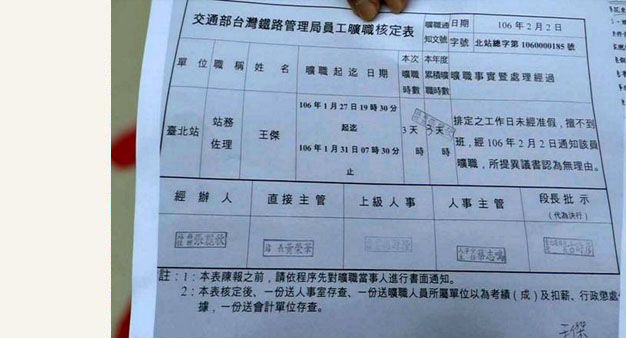 交通部台灣鐵路管理局員工曠職核定表
曠職通知文號 日期 106年2月2日
字號 北站總字第1060000185號
單位 職稱 姓名 曠職起迄日期 本次曠職時數 本年度累積曠職時數 曠職事實暨處理經過
臺北站 站務佐理 王傑
106年1月27日19時30分
起迄
106年1月31日07時30分
止
3天
時
3天
時
排定之工作日未經准假,擅不到
班,經106年2月2日通知該員
曠職,所提異議書認為無理由。
經辦人 直接主管 上級人事 人事主管 段長批示
(代為決行)
註:1:本表陳報之前,請依程序先對曠職當事人進行書面通知。
2:本表核定後、一份送人事室存查、一份送曠職人員所屬單位以為考績(成)及扣薪、行政懲處
據,一份送會計單位存查。
王傑